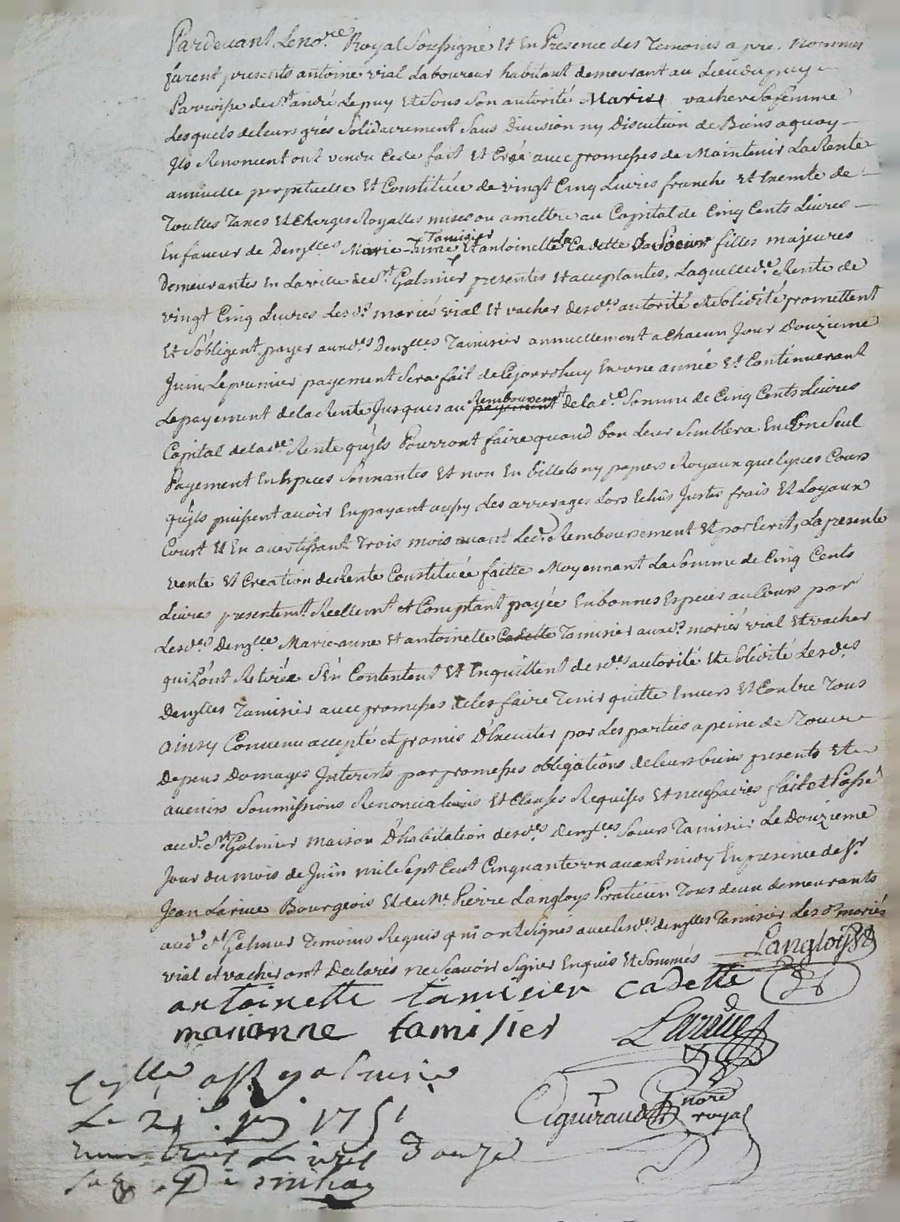 Pardevant Le nore. Royal Soussigné Et En Presence des Temoins apre. Nommes
furent presents antoine vial Laboureur habitant demeurant au Lieu du puy
Parroisse de St. andré Le puy Et Sous Son autorité Marie vacher Sa femme
Lesquels de leurs grés Solidairement Sans Division ny Discution de Biens aquoy
Ils Renoncent ont vendu Cede fait Et Créé avec promesses de Maintenir La Rente
annuelle perpetuelle Et Constituée de vingt Cinq Livres franche Et Exemte de
Touttes Taxes Et Charges Royalles mises ou a mettre au Capital de Cinq Cents Livres
En faveur de Denlles Marie-Anne Tamisier Et antoinette La Cadette Sa Soeur filles majeures
Demeurantes En La ville de St. Galmier presentes Et acceptantes, Laquelle de. Rente de
vingt Cinq Livres Lesds. mariés vial Et vacher de sde. autorité Et Solidité promettent
Et S'obligent payer auxdes Denlles Tamisier annuellement a Chacun Jour Douzieme
Juin, Le premier payement Sera fait de Cejourdhuy En une année Et Continueront
Le payement de la Rente Jusques au payement Rembourcement de la de. Somme de Cinq Cents Livres
Capital de lade Rente quils Pourront faire quand bon Leur Semblera En Un Seul
Payement En Espices Sonnantes Et non En billets ny papiers Royaux quelques Cours
quils puissent avoir En payant aussy Les arrerages Lors Echus Justes frais Et Loyaux
Cout Et En avertissant Trois mois avant Led. Remboursement Et par Ecrit, La presente
vente Et Creation de Rente Constituée faitte Moyennant La Somme de Cinq Cents
Livres presentemt. Reellemt. et Comptant payée En bonnes Especes au Cours par
Lesdes Denlles Marie-anne Et antoinette Cadette Tamisier auxds. mariés vial Et vacher
qui L'ont Retirée S'En Contentent Et En quittent de sdes autorité Et Solidité Lesdes
Denlles Tamisier avec promesses de les faire Tenir quitte Envers Et Contre Tous
ainsy Convenu accepté et promis D'Executer par Les parties a peine de Tous
Depens Domages Interests par promesses obligations de leurs biens presents Et
avenirs Soumissions Renonciations Et Clauses Requises Et necessaires fait et Passé
aud. St. Galmier maison D'habitation desdes Denlles Soeurs Tamisier Le Douzieme
Jour du mois de Juin mil Sept Cent Cinquante un avant midy En presence de Sr.
Jean Larive Bourgeois Et de Me. Pierre Langloys Praticien Tous deux demeurants
aud. St. Galmier Temoins Requis qui ont Signés avec Lesdes. Denlles Tamisier Lesds. mariés
vial et vacher ont Declarés ne Scavoir Signer Enquis Et Sommés Langloijs
antoinette tamisier cadette
marianne tamisier Larive
Cllé a St galmier
Le 21e. 1751
Ciguiraud nore royal
Livres Douze